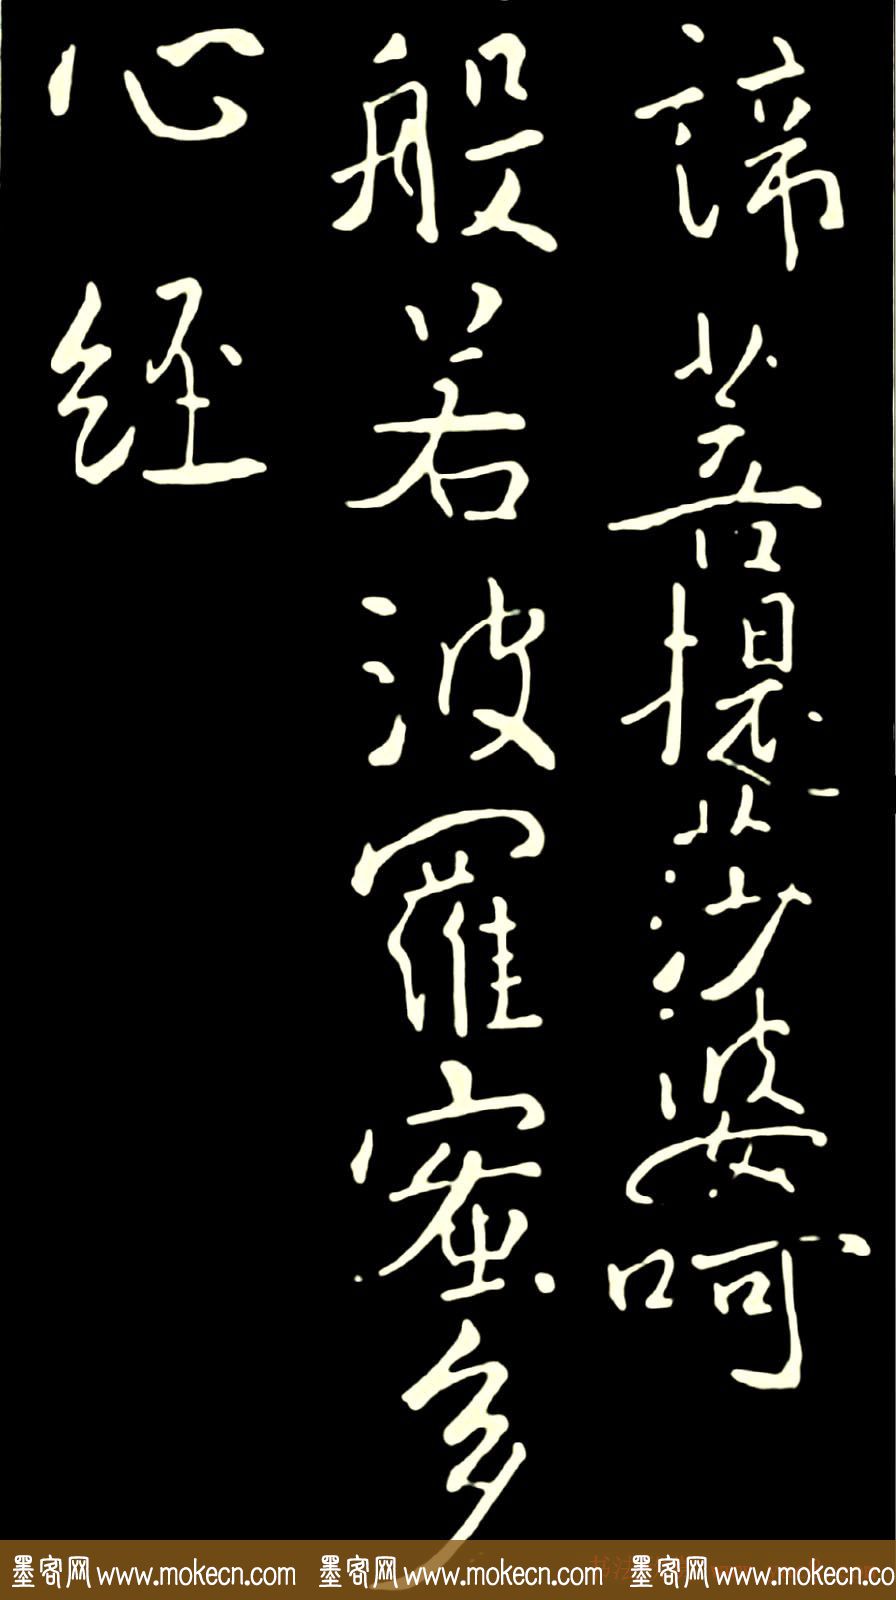 諦菩提莎婆呵
般若波羅蜜多
心經
墨客网 www.mokecn.com 墨客网 www.mokecn.com 墨客网 www.mokecn.co